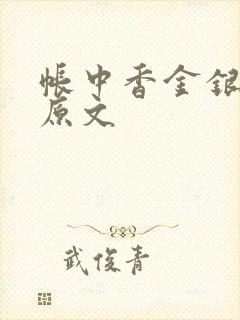 帳中香金銀
原文
武俊青